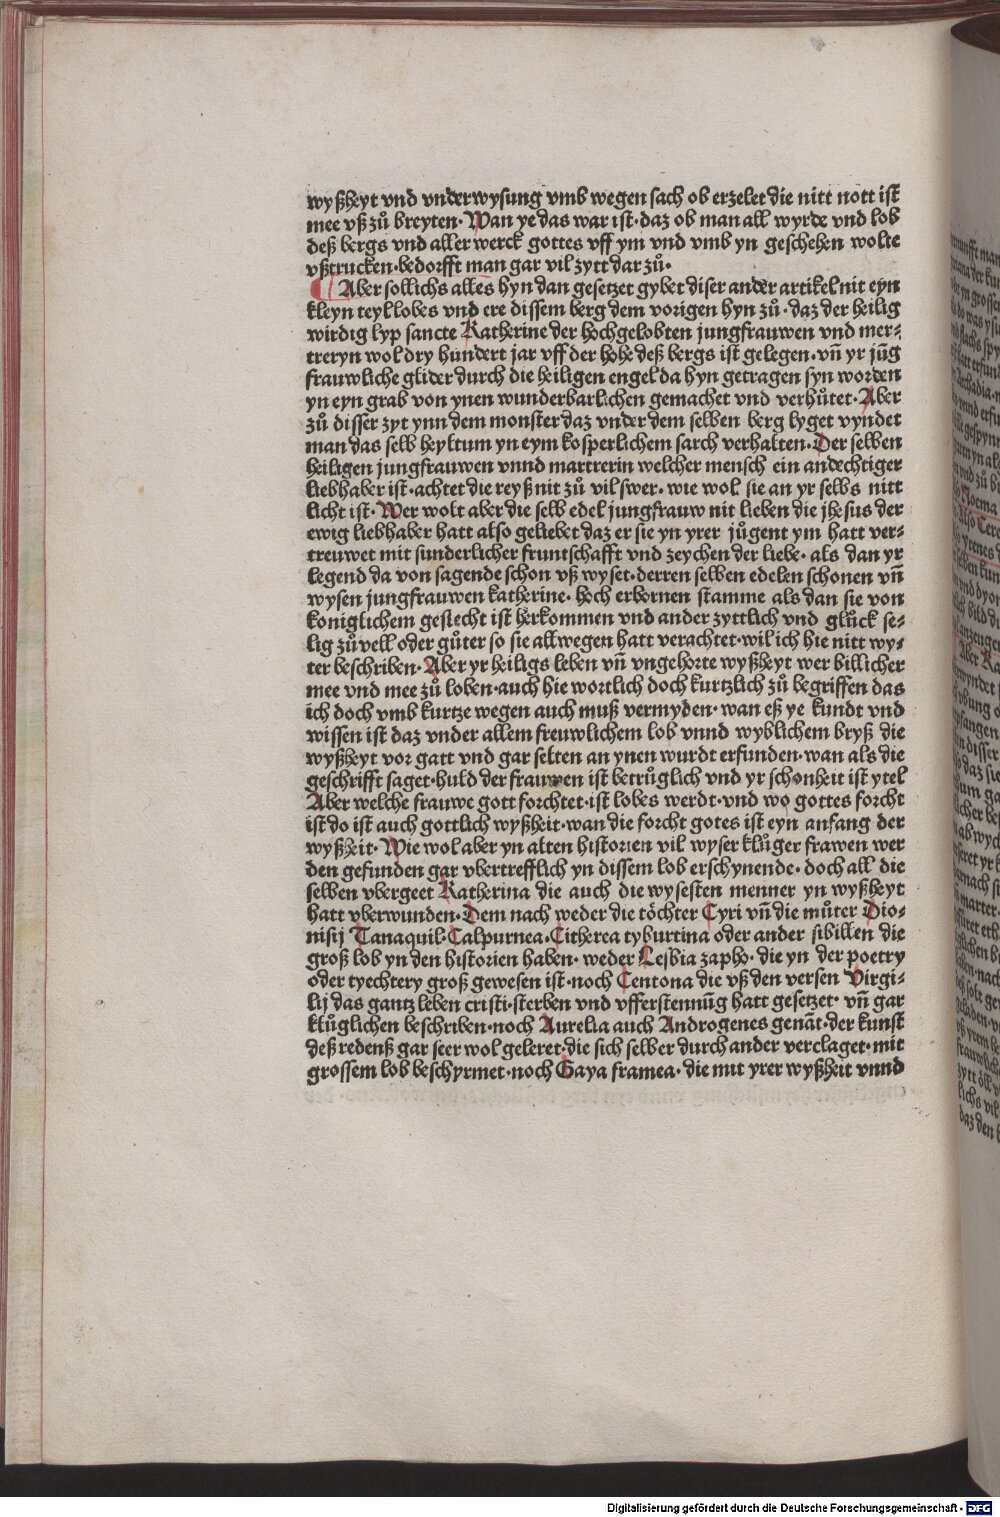 wyßheyt vnd vnderwysung vmb wegen sach ob erzelet die nitt nott ist
mee vß zů breyten· Wan ye das war ist· daz ob man all wyrde vnd lob
deß bergs vnd aller werck gottes vff ym vnd vmb yn geschehen wolte
vßtrucken· bedorfft man gar vil zytt dar zů·
Aber sollichs alles hyn dan gesetzet gybet diser ander artikel nit eyn
kleyn teyl lobes vnd ere dissem berg dem vorigen hyn zů· daz der heilig
wirdig lyp sancte Katherine der hochgelobten jungfrauwen vnd mer⸗
treryn wol dry hundert jar vff der hohe deß bergs ist gelegen· vñ yr jũg
frauwliche glider durch die heiligen engel da hyn getragen syn worden
yn eyn grab von ynen wunderbarlichen gemachet vnd verhůtet· Aber
zů disser zyt ynn dem monster daz vnder dem selben berg lyget vyndet
man das selb heyltum yn eym kosperlichem sarch verhalten· Der selben
heiligen jungfrauwen vnnd martrerin welcher mensch ein andechtiger
liebhaber ist· achtet die reyß nit zů vil swer· wie wol sie an yr selbs nitt
licht ist· Wer wolt aber die selb edel jungfrauw nit lieben die jhesus der
ewig liebhaber hatt also geliebet daz er sie yn yrer jůgent ym hatt ver⸗
treuwet mit sunderlicher fruntschafft vnd zeychen der liebe· als dan yr
legend da von sagende schon vß wyset· derren selben edelen schonen vñ
wysen jungfrauwen katherine· hoch erbornen stamme als dan sie von
koniglichem geslecht ist herkommen vnd ander zyttlich vnd glůck se⸗
lig zůvell oder gůter so sie allwegen hatt verachtet· wil ich hie nitt wy⸗
ter beschriben· Aber yr heiligs leben vñ vngehorte wyßheyt wer billicher
mee vnd mee zů loben· auch hie wortlich doch kurtzlich zů begriffen das
ich doch vmb kurtze wegen auch muß vermyden· wan eß ye kundt vnd
wissen ist daz vnder allem freuwlichem lob vnnd wyblichem bryß die
wyßheyt vor gatt vnd gar selten an ynen wurdt erfunden· wan als die
geschrifft saget· huld der frauwen ist betrůglich vnd yr schonheit ist ytel
Aber welche frauwe gott forchtet· ist lobes werdt· vnd wo gottes forcht
ist do ist auch gottlich wyßheit· wan die forcht gotes ist eyn anfang der
wyßheit· Wie wol aber yn alten historien vil wyser klůger frawen wer
den gefunden gar vbertrefflich yn dissem lob erschynende· doch all die
selben vbergeet Katherina die auch die wysesten menner yn wyßheyt
hatt vberwunden· Dem nach weder die töchter Cyri vñ die můter Dio⸗
nisij Tanaquil· Calpurnea· Citherea tyburtina oder ander sibillen die
groß lob yn den historien haben· weder Lesbia zapho· die yn der poetry
oder tyechtery groß gewesen ist· noch Centona die vß den versen Virgi⸗
lij das gantz leben cristi· sterben vnd vfferstennũg hatt gesetzet· vñ gar
klůglichen beschriben· noch Aurelia auch Androgenes genãt· der kunst
deß redenß gar seer wol geleret· die sich selber durch ander verclaget· mit
grossem lob beschyrmet· noch Gaya framea· die mit yrer wyßheit vnnd
Digitalisierung gefördert durch die Deutsche Forschungsgemeinschaft - DFG